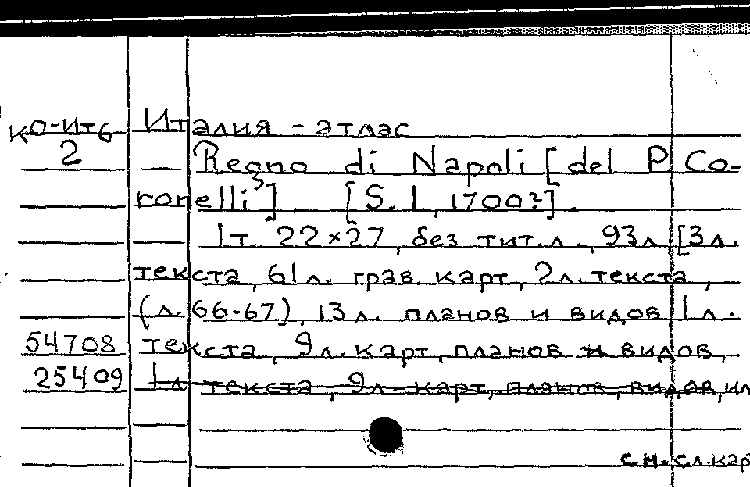 ко-ит6 Италия - атлас
2 Regno di Napoli [del P Co-
ronelli] [S. l, 1700?].
1т. 22×27, без тит.л., 93л. [3л.
текста, 61л. грав. карт, 2л. текста,
(л. 66-67), 13л. планов и видов 1л.
54708 текста, 9л. карт, планов и видов,
25409 1л текста, 9л карт, планов, видов, ил
см. сл. кар